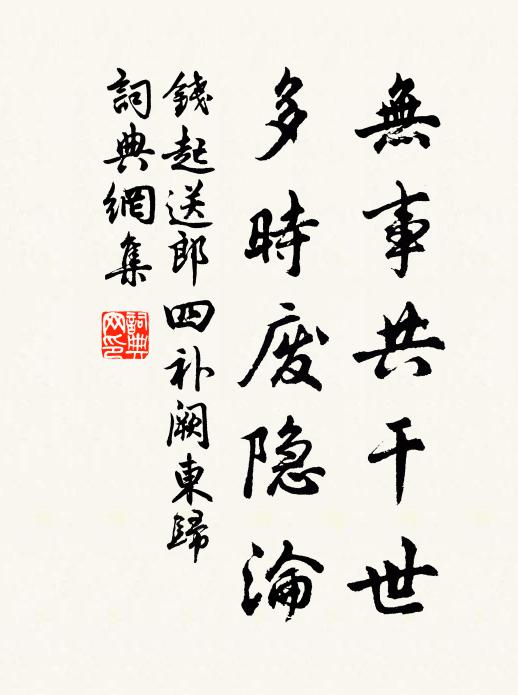 無事共干世
多時废隐淪
錢起送郎四补阙東歸
詞典網集
詞典网印